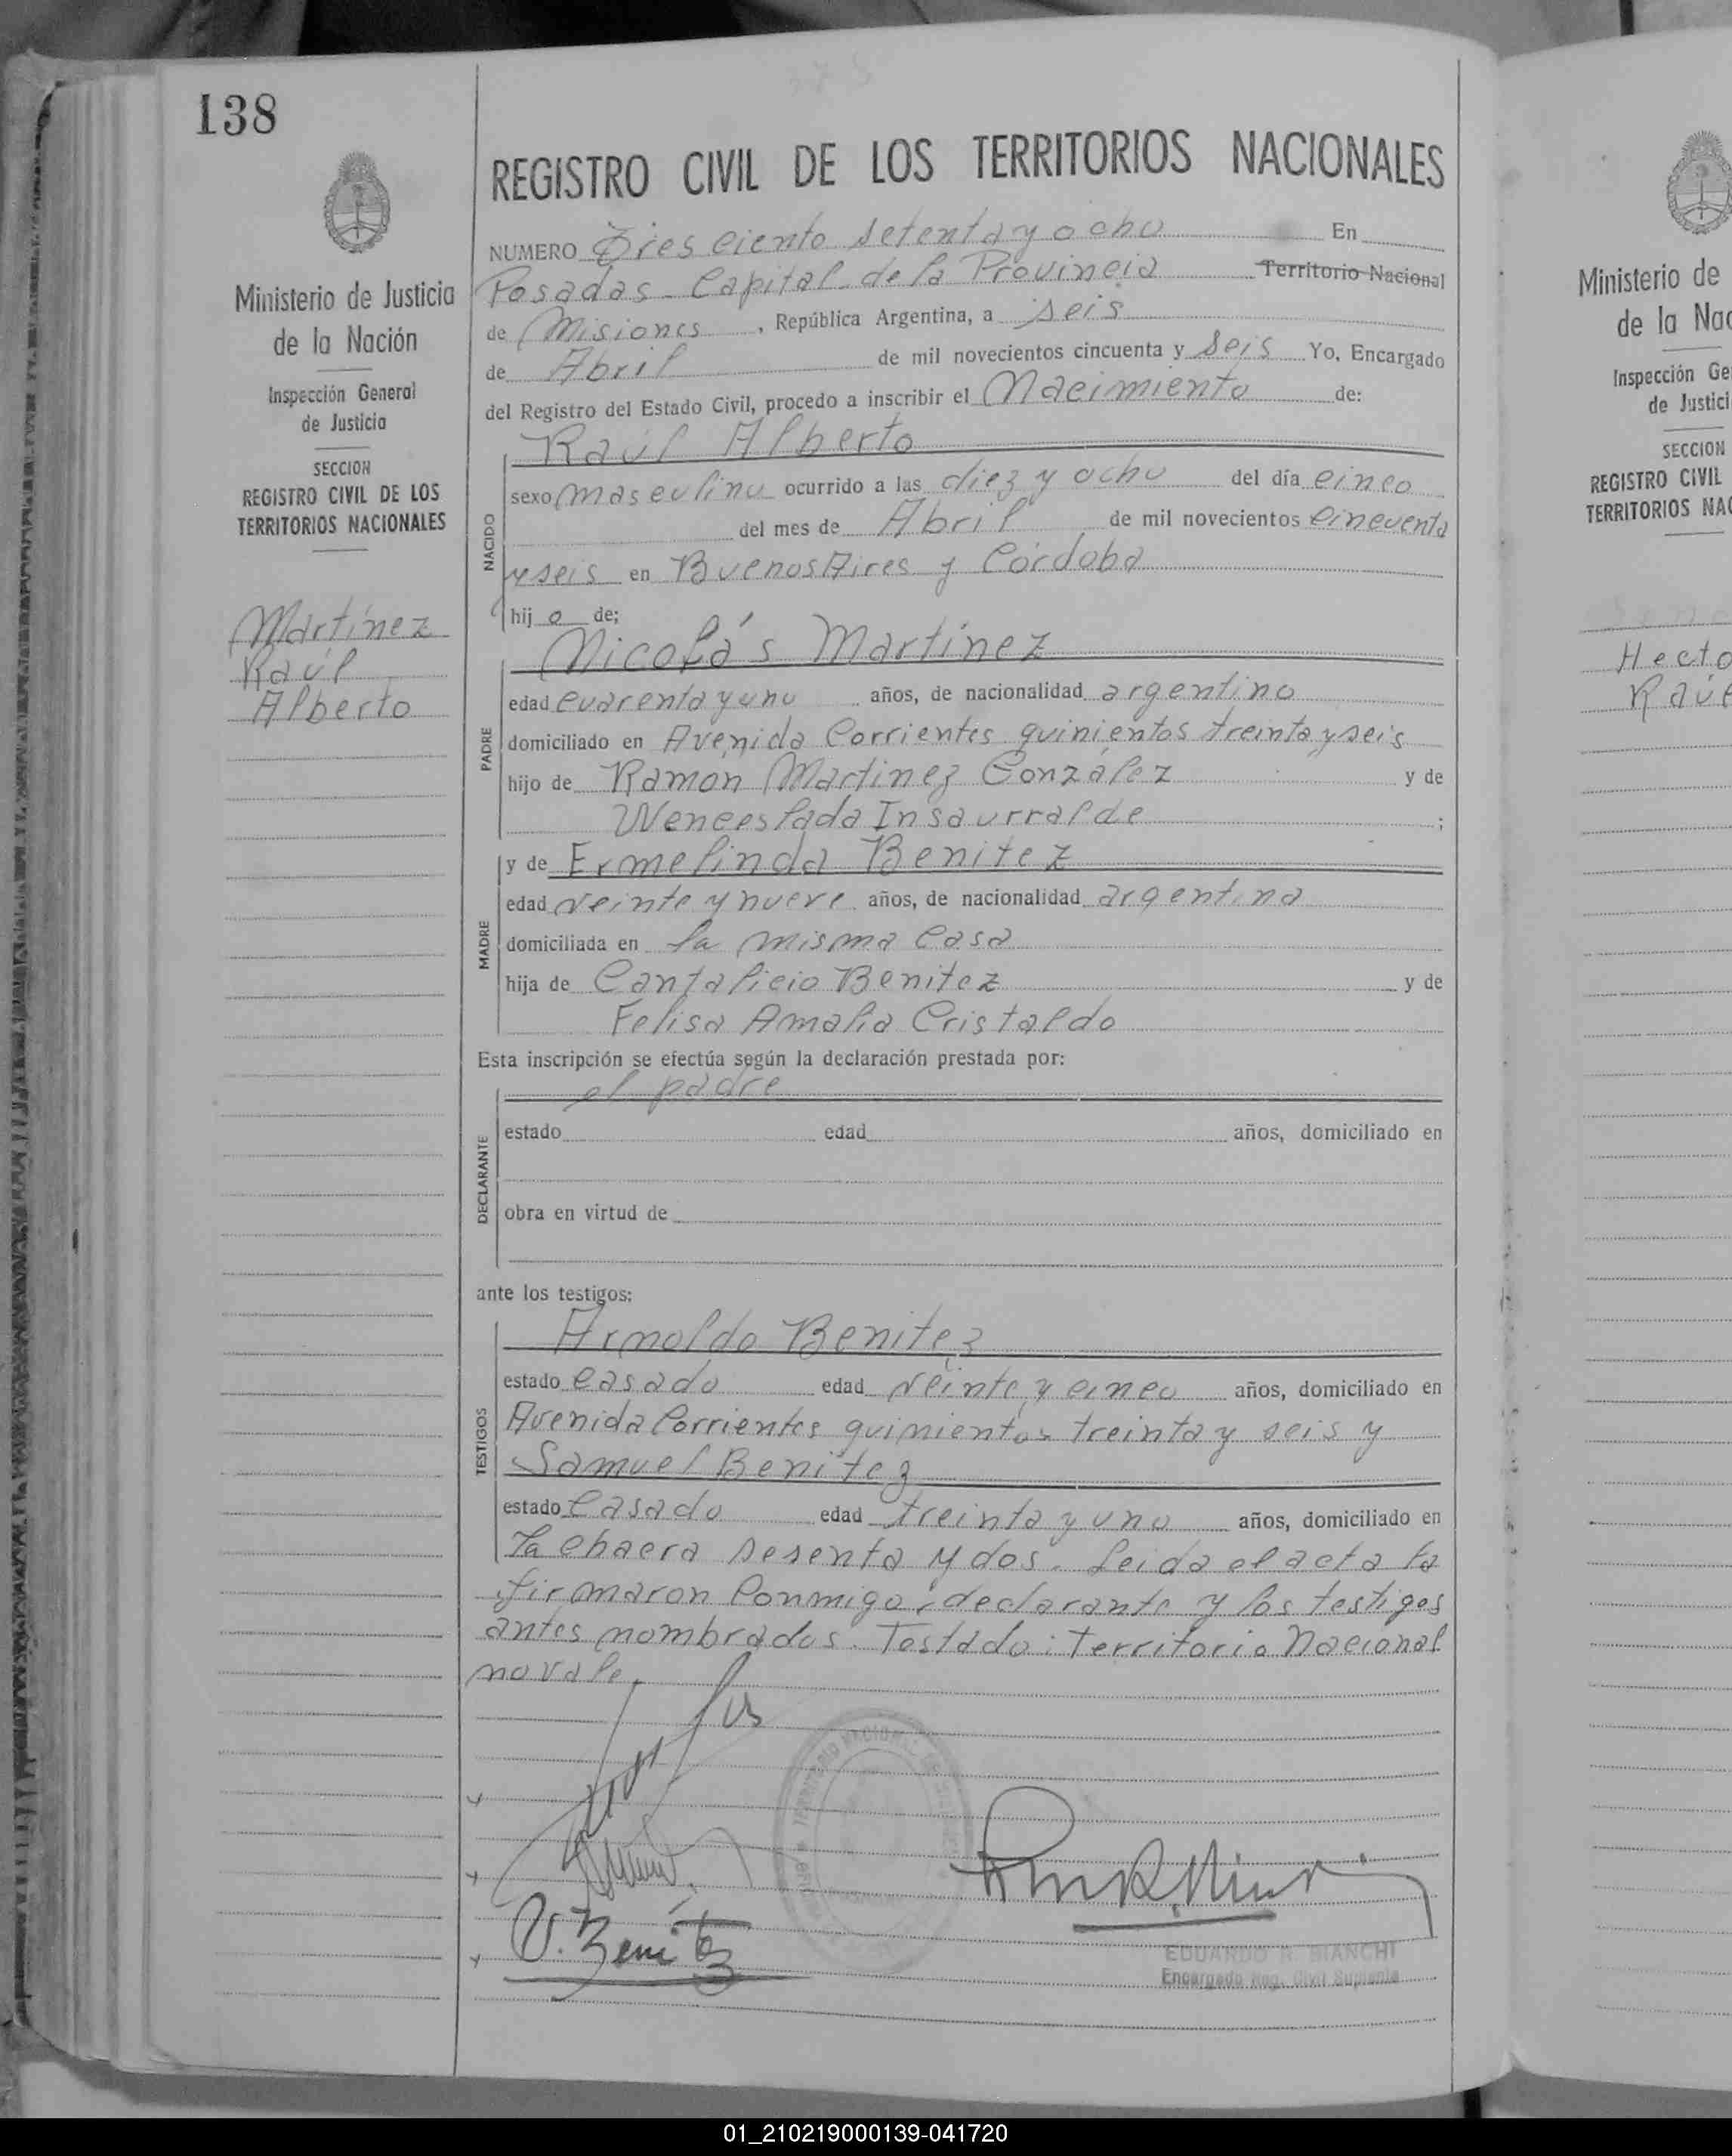 138
REGISTRO CIVIL DE LOS TERRITORIOS NACIONALES
Ministerio de Justicia
de la Nación
Inspección General
de Justicia
SECCION
REGISTRO CIVIL DE LOS
TERRITORIOS NACIONALES
Martínez
Raúl
Alberto
NUMERO Tresciento setenta y ocho En
Posadas - Capital de la Provincia Territorio Nacional
de Misiones, República Argentina, a seis
de Abril de mil novecientos cincuenta y seis Yo, Encargado
del Registro del Estado Civil, procedo a inscribir el Nacimiento de:
Raúl Alberto
NACIDO
sexo masculino ocurrido a las diez y ocho del día cinco
del mes de Abril de mil novecientos cincuenta
y seis en Buenos Aires y Córdoba
hij o de;
Nicolás Martínez
PADRE
edad cuarenta y uno años, de nacionalidad argentino
domiciliado en Avenida Corrientes quinientos treinta y seis
hijo de Ramón Martinez González y de
Wenceslada Insaurralde ;
y de Ermelinda Benitez
MADRE
edad veinte y nueve años, de nacionalidad argentina
domiciliada en la misma casa
hija de Cantalicio Benitez y de
Felisa Amalia Cristaldo
Esta inscripción se efectúa según la declaración prestada por:
el padre
DECLARANTE
estado edad años, domiciliado en
obra en virtud de
ante los testigos:
Arnoldo Benitez
TESTIGOS
estado casado edad veinte y cinco años, domiciliado en
Avenida Corrientes quinientos treinta y seis y
Samuel Benitez
estado casado edad treinta y uno años, domiciliado en
la chacra sesenta y dos. Leida el acta la
firmaron conmigo, declarante y los testigos
antes nombrados. Testado: Territorio Nacional
no vale.
Benitez
EDUARDO R. BIANCHI
Encargado Reg. Civil Suplente
Ministerio de
de la Nac
Inspección Ge
de Justici
SECCION
REGISTRO CIVIL
TERRITORIOS NAC
Hecto
Raúl
01_210219000139-041720